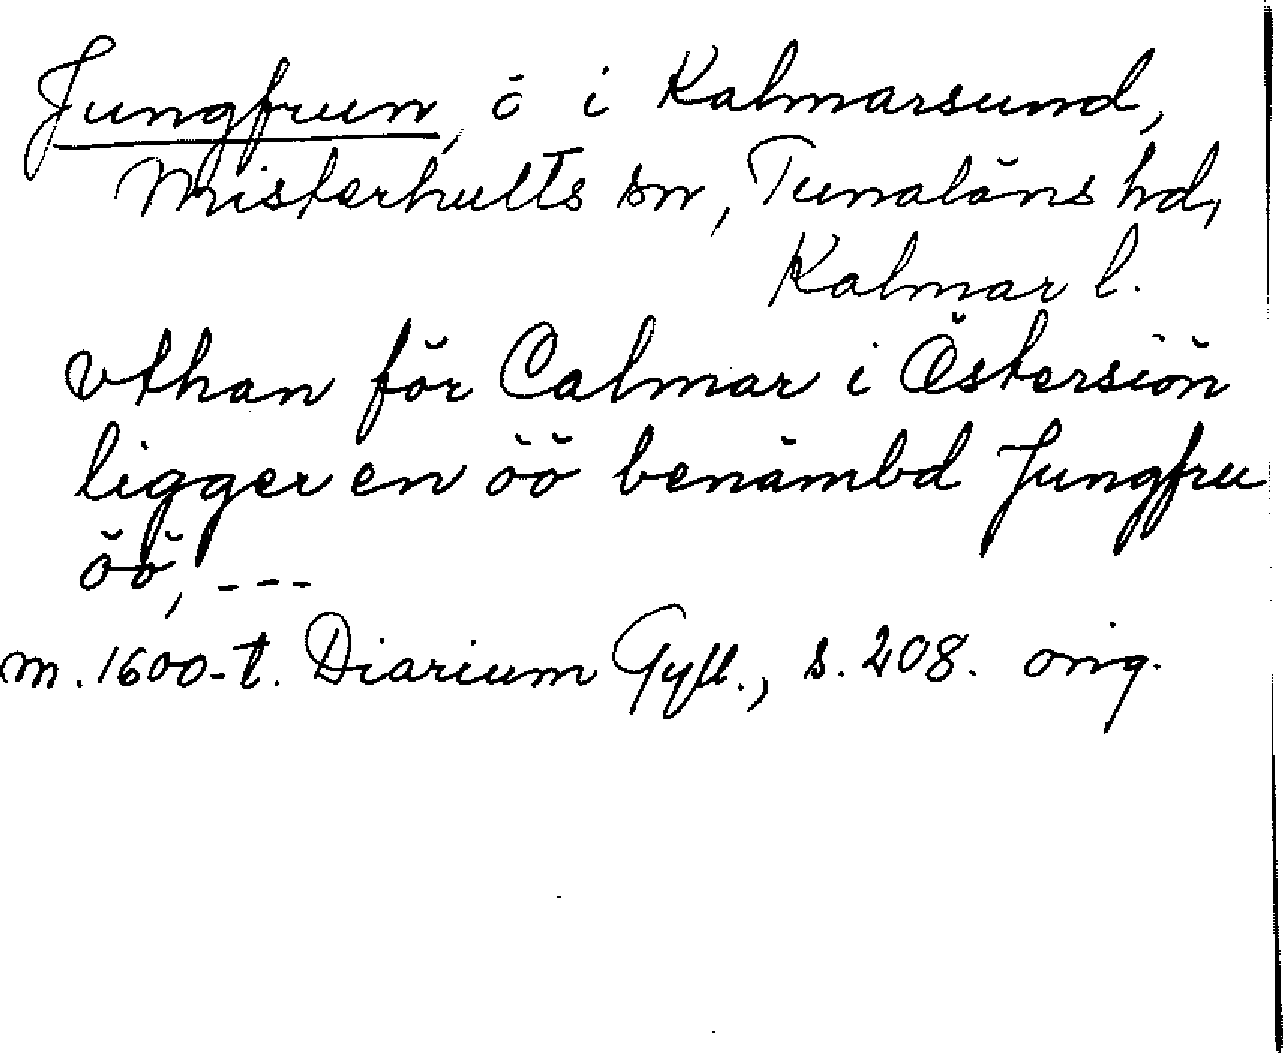 Jungfrun, ö i Kalmarsund,
Misterhults sn, Tunaläns hd,
Kalmar l.
vthan för Calmar i Östersiön
ligger en öö benämbd Jungfru
öö, ---
m. 1600-t. Diarium Gyll., s. 208. orig.